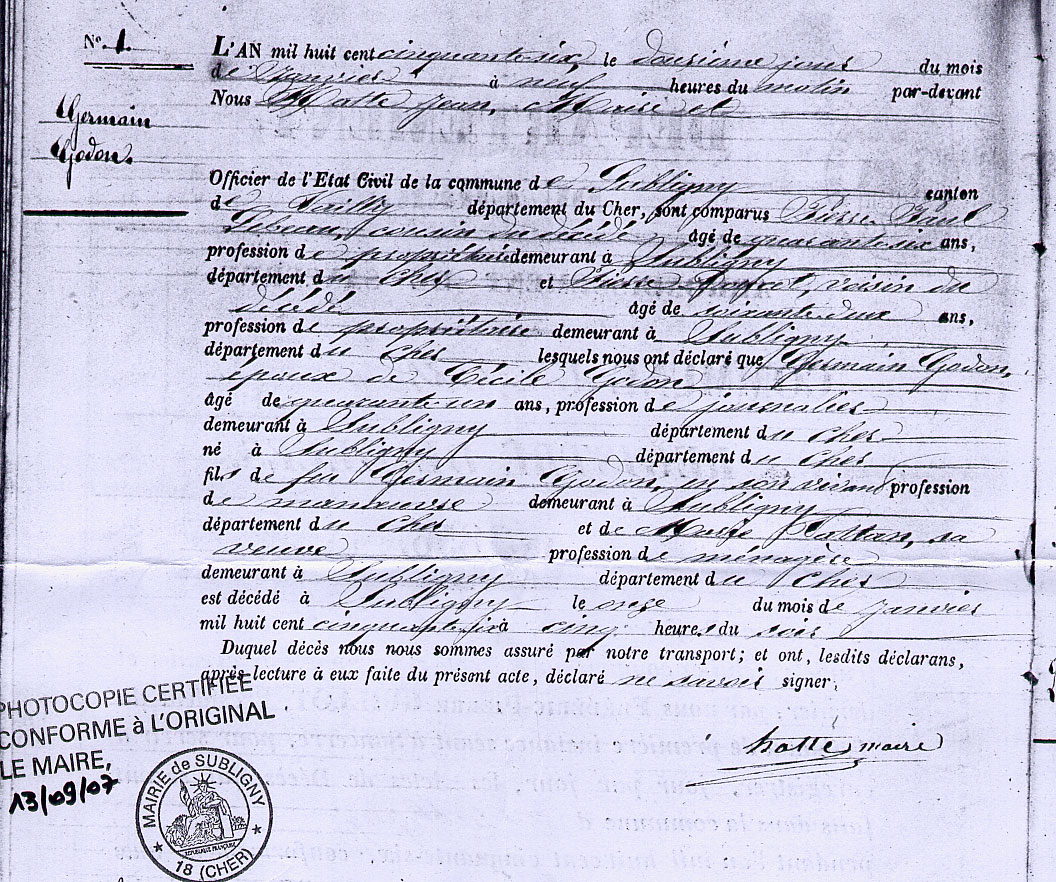 N° 1.
Germain
Godon.
L'AN mil huit cent cinquante six, le douzième jour du mois
de Janvier à neuf heures du matin par-devant
Nous Hatte Jean, Maire et
Officier de l'Etat Civil de la commune de Subligny canton
de Vailly département du Cher, sont comparus Pierre Paul
cousin du décédé âgé de quarante six ans,
profession de propriétaire demeurant à Subligny
département du Cher et Pierre voisin du
décédé âgé de soixante deux ans,
profession de propriétaire demeurant à Subligny
département du Cher lesquels nous ont déclaré que Germain Godon,
époux de Cécile Godon
âgé de quarante un ans, profession de journalier
demeurant à Subligny département du Cher
né à Subligny département du Cher
fils de feu Germain Godon, en son vivant profession
de manœuvre demeurant à Subligny
département du Cher et de Marie sa
veuve profession de ménagère
demeurant à Subligny département du Cher
est décédé à Subligny le onze du mois de Janvier
mil huit cent cinquante six à cinq heures du soir
Duquel décès nous nous sommes assuré par notre transport; et ont, lesdits déclarans,
après lecture à eux faite du présent acte, déclaré ne savoir signer.
hatte maire
PHOTOCOPIE CERTIFIÉE
CONFORME à L'ORIGINAL
LE MAIRE,
13/09/07
MAIRIE de SUBLIGNY
RÉPUBLIQUE FRANÇAISE
18 (CHER)